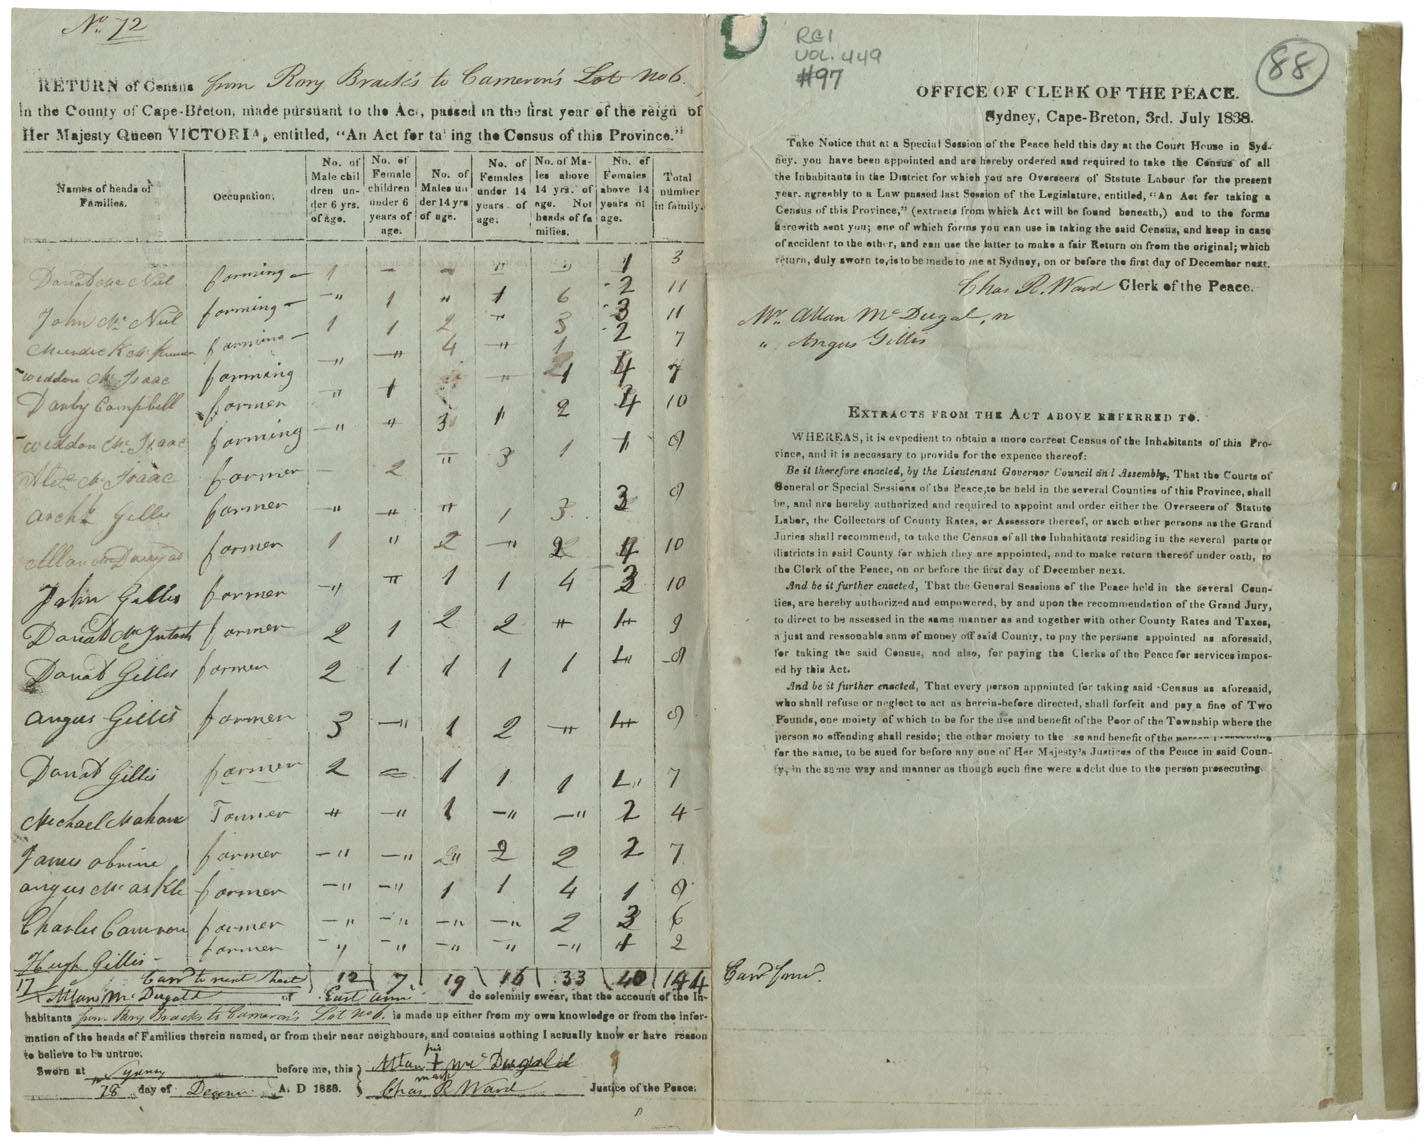 No 72
RETURN of Census from Rory Brack's to Cameron's Lot No 6.
in the County of Cape-Breton, made pursuant to the Act, passed in the first year of the reign of
Her Majesty Queen VICTORIA, entitled, "An Act for taking the Census of this Province."
Names of heads of Families. Occupation. No. of Male children under 6 yrs. of age. No. of Female children under 6 years of age. No. of Males un der 14 yrs of age. No. of Females under 14 years of age. No. of Males above 14 yrs. of age. Not heads of families. No. of Females above 14 years of age. Total number in family.
Donald Mc Niel forming 1 - - " " 1 3
John Mc Niel forming " 1 " 1 6 2 11
forming 1 1 2 " 3 3 11
Weddon Mc Isaac forming " " 4 " 1 2 7
Danby Campbell former " 1 " 1 4 7
Weddon Mc Isaac forming " " 3 1 2 4 10
Mc Isaac former - 2 " 3 1 1
Archd Gillis former " " " 1 3 3
Allan former 1 " 2 " 2 4 10
John Gillis former " " 1 1 4 3 10
Donald Mc Intosh former 2 1 2 2 " 1 9
Donald Gillis former 2 1 1 1 1 1 8
Angus Gillis former 3 " 1 2 " 1 8
Donald Gillis former 2 1 1 1 1 7
Michael Mahane Tanner " " 1 " " 2 4
James obrine former " " 2 2 2 7
angus Mc askle former " " 1 1 4 1 8
Charles Camron former " " " " 2 3 6
Hugh Gillis former " " " " " 1 2
17 Card to next sheet 12 7 19 16 33 40 144
Allan Mc Dugald of East arm do solemnly swear, that the account of the In-
habitants from Rory Bracks to Cameron's Lot No 6. is made up either from my own knowledge or from the infor-
mation of the heads of Families therein named, or from their near neighbours, and contains nothing I actually know or have reason
to believe to be untrue.
Sworn at Sydney before me, this Allan his + mark Mc Dugald
18 day of Decem A. D 1838. Chas R Ward Justice of the Peace.
RG1
VOL. 449
#97
88
OFFICE OF CLERK OF THE PEACE.
Sydney, Cape-Breton, 3rd. July 1838.
Take Notice that at a Special Session of the Peace held this day at the Court House in Syd-
ney, you have been appointed and are hereby ordered and required to take the Census of all
the Inhabitants in the District for which you are Overseers of Statute Labour for the present
year, agreably to a Law passed last Session of the Legislature, entitled, "An Act for taking a
Census of this Province," (extracts from which Act will be found beneath,) and to the forms
herewith sent you; one of which forms you can use in taking the said Census, and keep in case
of accident to the other, and can use the latter to make a fair Return on from the original; which
return, duly sworn to, is to be made to me at Sydney, on or before the first day of December next.
Chas R. Ward Clerk of the Peace.
Mr. Allan Mc Dugal, n
" Angus Gillis
EXTRACTS FROM THE ACT ABOVE REFERRED TO.
WHEREAS, it is expedient to obtain a more correct Census of the Inhabitants of this Pro-
vince, and it is necessary to provide for the expence thereof:
Be it therefore enacted, by the Lieutenant Governor Council and Assembly, That the Courts of
General or Special Sessions of the Peace, to be held in the several Counties of this Province, shall
be, and are hereby authorized and required to appoint and order either the Overseers of Statute
Labor, the Collectors of County Rates, or Assessors thereof, or such other persons as the Grand
Juries shall recommend, to take the Census of all the Inhabitants residing in the several parts or
districts in said County for which they are appointed, and to make return thereof under oath, to
the Clerk of the Peace, on or before the first day of December next.
And be it further enacted, That the General Sessions of the Peace held in the several Coun-
ties, are hereby authorized and empowered, by and upon the recommendation of the Grand Jury,
to direct to be assessed in the same manner as and together with other County Rates and Taxes,
a just and reasonable sum of money off said County, to pay the persons appointed as aforesaid,
for taking the said Census, and also, for paying the Clerks of the Peace for services impos-
ed by this Act.
And be it further enacted, That every person appointed for taking said Census as aforesaid,
who shall refuse or neglect to act as herein-before directed, shall forfeit and pay a fine of Two
Pounds, one moiety of which to be for the use and benefit of the Poor of the Township where the
person so offending shall reside; the other moiety to the se and benefit of the person prosecuting
for the same, to be sued for before any one of Her Majesty's Justices of the Peace in said Coun-
ty, in the same way and manner as though such fine were a debt due to the person prosecuting.
Card forwd.